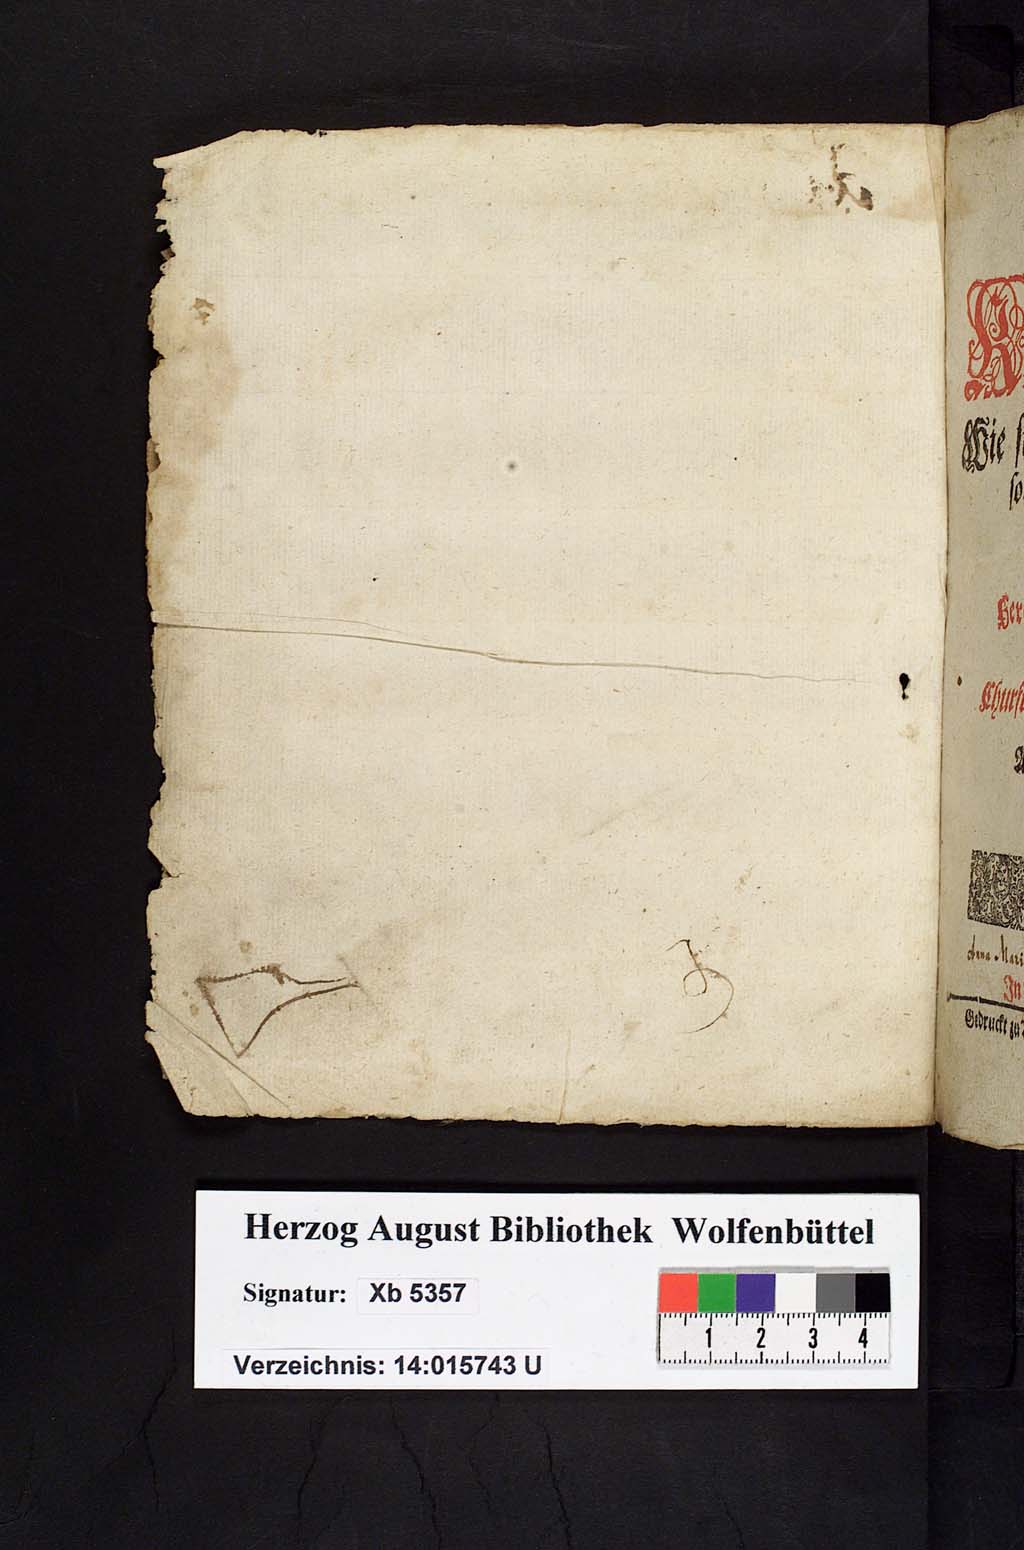 Wie
so
Her
Churf
Anna Mari
In
Gedruckt zu
Herzog August Bibliothek Wolfenbüttel
Signatur: Xb 5357
1 2 3 4
Verzeichnis: 14:015743 U